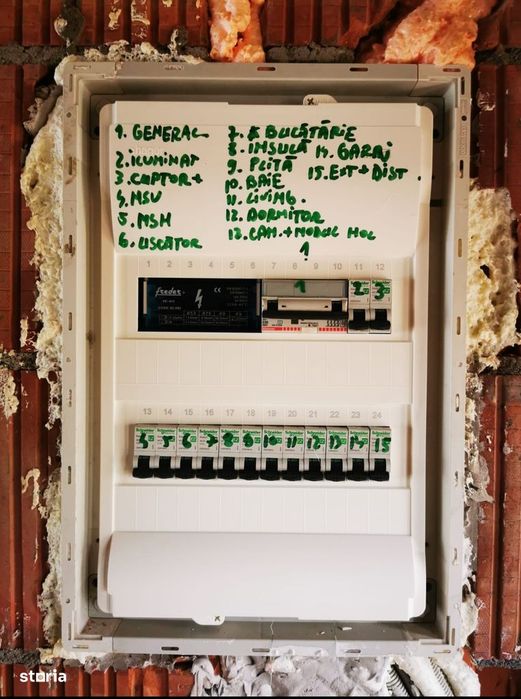 1. GENERAL
2. ILUMINAT
3. CUPTOR+
4. MSV
5. MSH
6. USCĂTOR
7. BUCĂTĂRIE
8. INSULĂ 14. GARAJ
9. PLITĂ 15. EXT + DIST.
10. BAIE
11. LIVING.
12. DORMITOR
13. CAM. + MODUL HOL
1 2 3 4 5 6 7 8 9 10 11 12
feeder
1 2 3
13 14 15 16 17 18 19 20 21 22 23 24
Schneider Schneider Schneider Schneider Schneider Schneider Schneider Schneider Schneider Schneider Schneider Schneider
4 5 6 7 8 9 10 11 12 13 14 15
storia